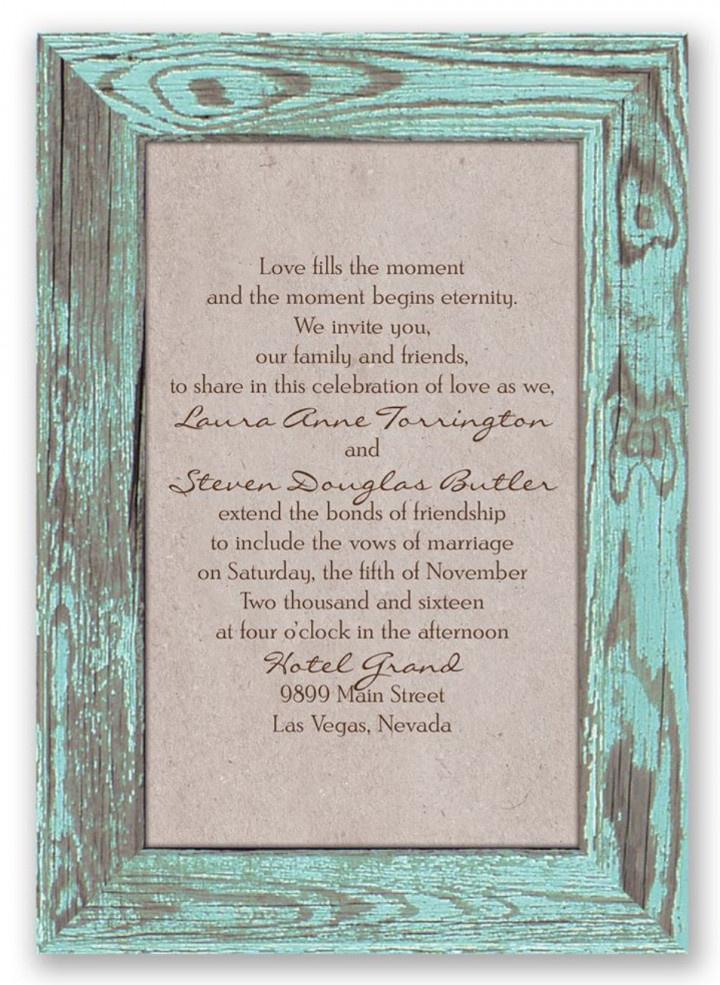 Love fills the moment
and the moment begins eternity.
We invite you,
our family and friends,
to share in this celebration of love as we,
Laura Anne Torrington
and
Steven Douglas Butler
extend the bonds of friendship
to include the vows of marriage
on Saturday, the fifth of November
Two thousand and sixteen
at four o'clock in the afternoon
Hotel Grand
9899 Main Street
Las Vegas, Nevada